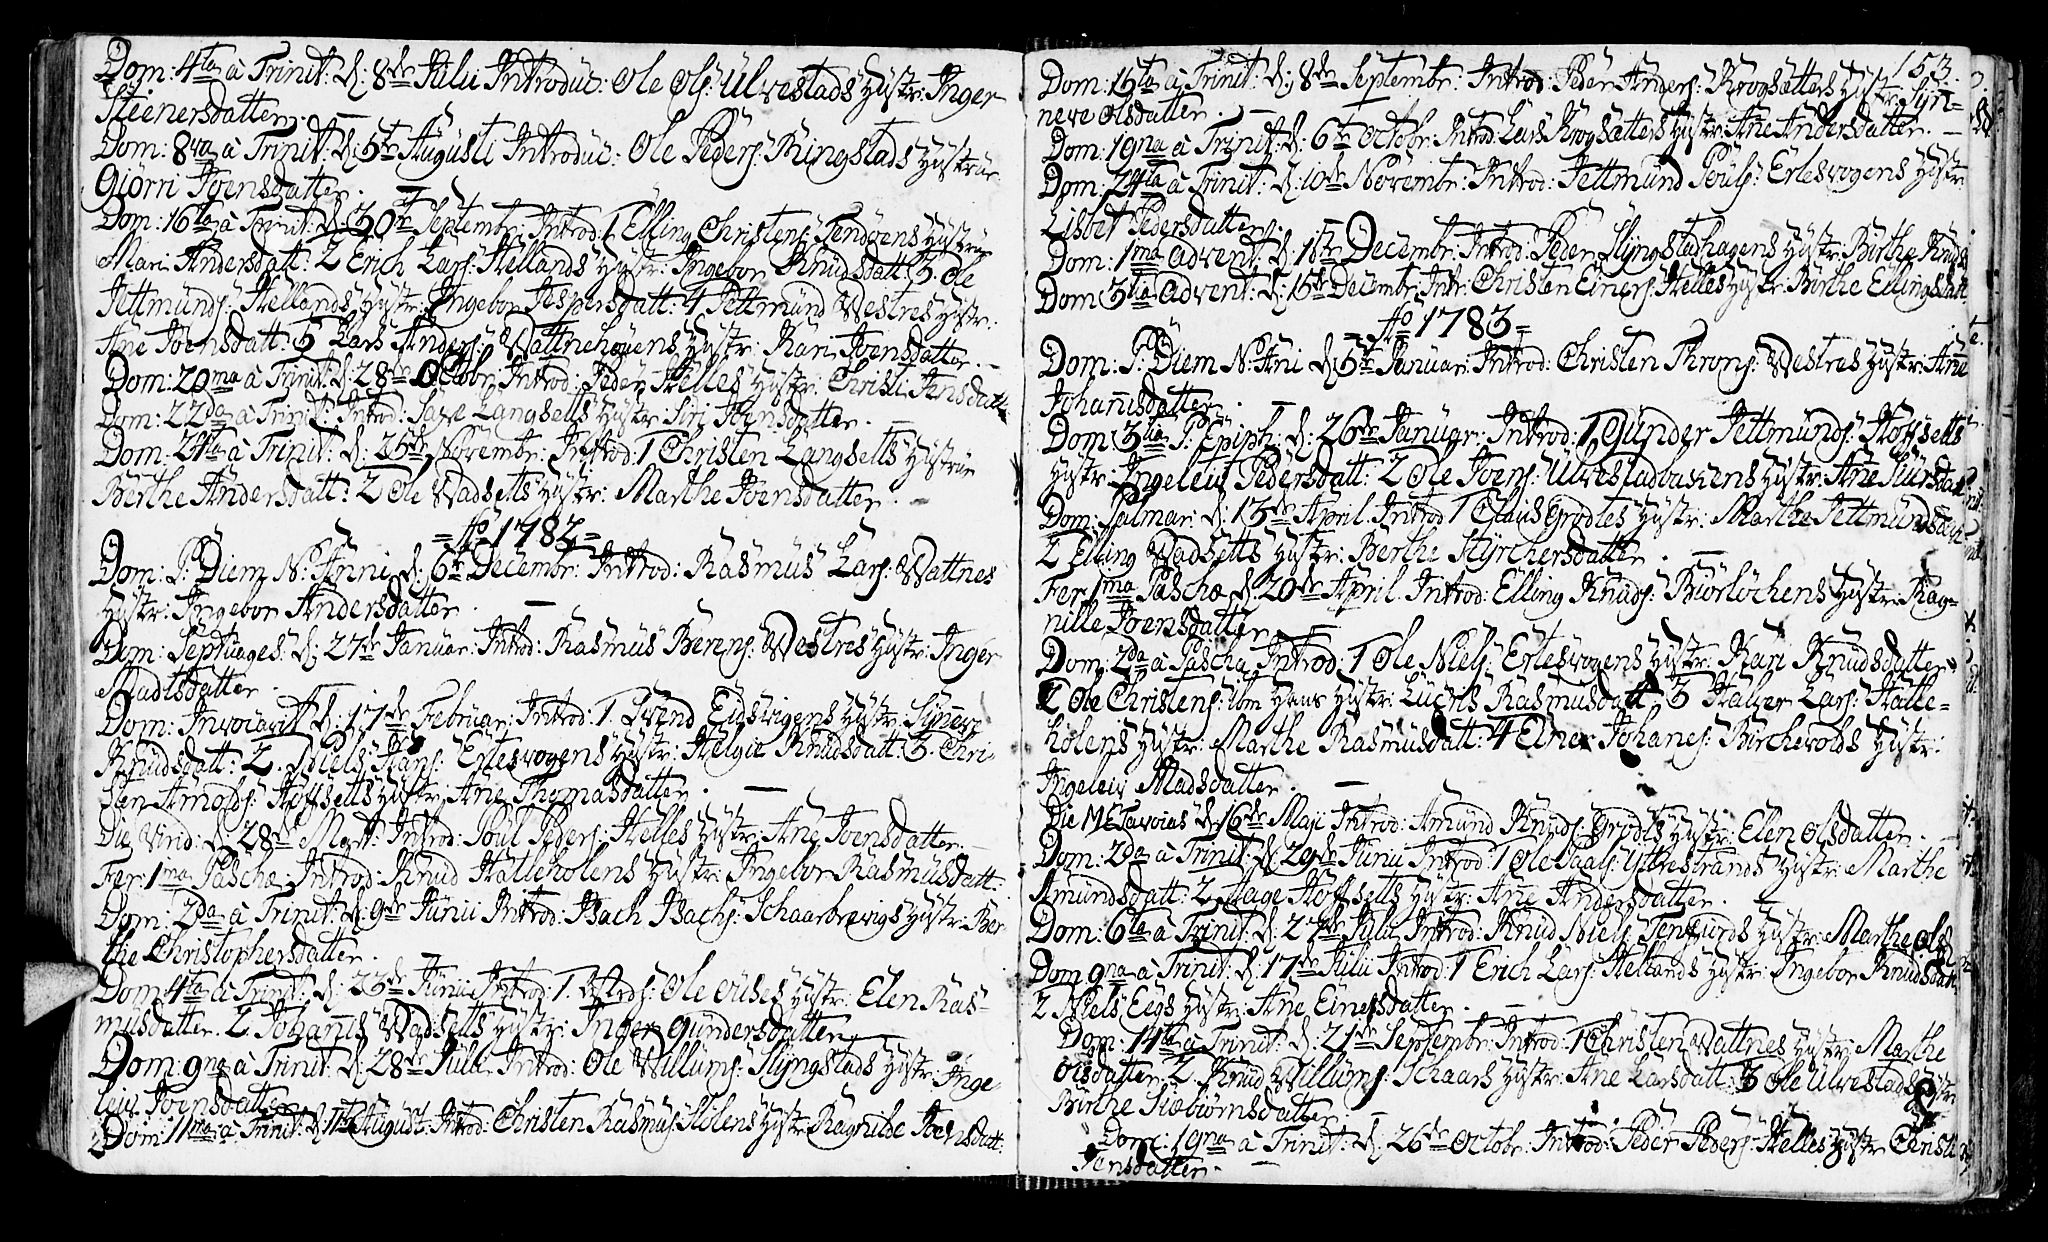 Dom: 4ta à Trinit: d: 8de Julii Introduc: Ole Ols: Ulvestads Hustr: Inger
Steenersdatter. —
Dom: 8va à Trinit: d: 5te Augusti Introduc: Ole Peders: Ringstads Hustrue
Giørri Joensdatter. —
Dom: 16ta à Trinit: d: 30te Septembr: Introd: 1 Elling Christens: Hustrue
Mari Andersdatt: 2 Erich Lars: Hellands Hustr: Ingebor Knudsdatt: 3 Ole
Jettmunds: Hellands Hustr: Ingebor Jespersdatt: 4 Jettmund Westres Hustr:
Ane Joensdatt: 5 Lars Anders: Wattnehøuens Hustr: Kari Joensdatter. —
Dom: 20ma à Trinit: d: 28de Octobr: Introd: Peder Helles Hustr: Christi Jensdatt:
Dom: 22da à Trinit: Introd: Langsetts Hustr: Siri Joensdatter. —
Dom: 24ta à Trinit: d: 25de Novembr: Introd: 1 Christen Langsetts Hustrue
Berthe Andersdatt: 2 Ole Wadsetts Hustr: Marthe Joensdatter. —
= Ao 1782 =
Dom: P: Diem N: Anni d: 6te Decembr: Introd: Rasmus Lars: Wattnes
Hustr: Ingebor Andersdatter. —
Dom: Septuages: d: 27de Januar: Introd: Rasmus Berens: Westres Hustr: Inger
Madtsdatter. —
Dom: Invocavit d: 17de Februar: Introd: 1. Svend Eidsvigens Hustr: Synneve
Knudsdatt: 2. Niels Hans: Ertesvogens Hustr: Helgie Knudsdatt: 3. Chri-
sten Arnolds: Hofsetts Hustr: Ane Thomasdatter. —
Die Virid: d: 28de Mart: Introd: Poul Peders: Helles Hustr: Ane Joensdatter. —
Fer: 1ma Paschæ: Introd: Knud Halleholens Hustr: Ingebor Rasmusdatt:
Dom: 2da à Trinit: d: 9de Junii Introd: Isach Isachs: Schaarbrevigs Hustr: Ber-
the Christophersdatter. —
Dom: 4ta à Trinit: d: 23de Junii Introd: 1. Ole Hustr: Elen Ras-
musdatter. 2 Johannis Wadsetts Hustr: Inger Gundersdatter. —
Dom: 9na à Trinit: d: 28de Julii Introd: Ole Willums: Slyngstads Hustr: Inge-
leiv Joensdatter. —
Dom: 11ma à Trinit: d: 11te August: Introd: Christen Rasmus: Holens Hustr: Ragnilde Joensdatt:
153.
Dom: 15ta à Trinit: d: 8de Septembr: Introd: Peder Anders: Krogsætters Hustr: Syn-
neve Olsdatter. —
Dom: 19na à Trinit: d: 6te Octobr: Introd: Lars Krogsætters Hustr: Ane Andersdatter. —
Dom: 24ta à Trinit: d: 10de Novembr: Introd: Jettmund Pouls: Ertesvogens Hustr:
Lisbet Pedersdatter. —
Dom: 1ma Advent: d: 1ste Decembr: Introd: Peder Slyngstadhagens Hustr: Birthe Knuds
Dom: 3tia Advent: d: 15de Decembr: Intr: Christen Einers: Helles Hustr: Birthe Ellingsdatt
= Ao 1783 =
Dom: P: Diem N: Ani d: 5te Januar: Introd: Christen Throns: Westres Hustr: Ane
Johannisdatter. —
Dom: 3tia P: Epiph: d: 26de Januar: Introd: 1, Gunder Jettmunds: Hofsetts
Hustr: Ingeleiv Pedersdatt: 2 Ole Joens: Ulvestadbakens Hustr: Ane
Dom: Palmar: d: 13de April. Introd: 1 Claus Grødtes Hustr: Marthe Jettmundsdatt
2 Elling Wadsetts Hustr: Berthe Styrchersdatter. —
Fer: 1ma Paschæ d: 20de April. Introd: Elling Knuds: Biørløchens Hustr: Rag-
nille Joensdatter. —
Dom: 2da à Pascha Introd: 1 Ole Niels: Ertesvogens Hustr: Kari Knudsdatter.
2 Ole Christens: ibm Hans Hustr: Rasmusdatt: 3 Halvor Lars: Halle-
holens Hustr: Marthe Rasmusdatt: 4 Einer Johanes: Birchevolds Hustr:
Ingeleiv Madsdatter. —
Die d: 16de Maji Introd: Amund Knuds: Grødtes Hustr: Elen Olsdatter. —
Dom: 2da à Trinit: d: 29de Junii Introd: 1 Ole Paals: Yttrestrands Hustr: Marthe
Amundsdatt: 2 Aage Hofsetts Hustr: Ane Andersdatter. —
Dom: 6ta à Trinit: d: 27de Julii Introd: Knud Niels: Tenfiords Hustr: Marthe Ols
Dom: 9na à Trinit: d: 17de Julii Introd: 1 Erich Lars: Hellands Hustr: Ingebor Knudsdatt:
2 Niels Eegs Hustr: Ane Einersdatter. —
Dom: 14ta à Trinit: d: 21de Septembr: Introd: 1 Christen Wattnes Hustr: Marthe
Olsdatter. 2 Knud Willums: Schaars Hustr: Ane Larsdatt: 3 Ole Ulvestads Hustr:
Birthe Siebiørnsdatter. —
Dom: 19na à Trinit: d: 26de Octobr: Introd: Peder Peders: Helles Hustr: Christi
Jensdatter. —